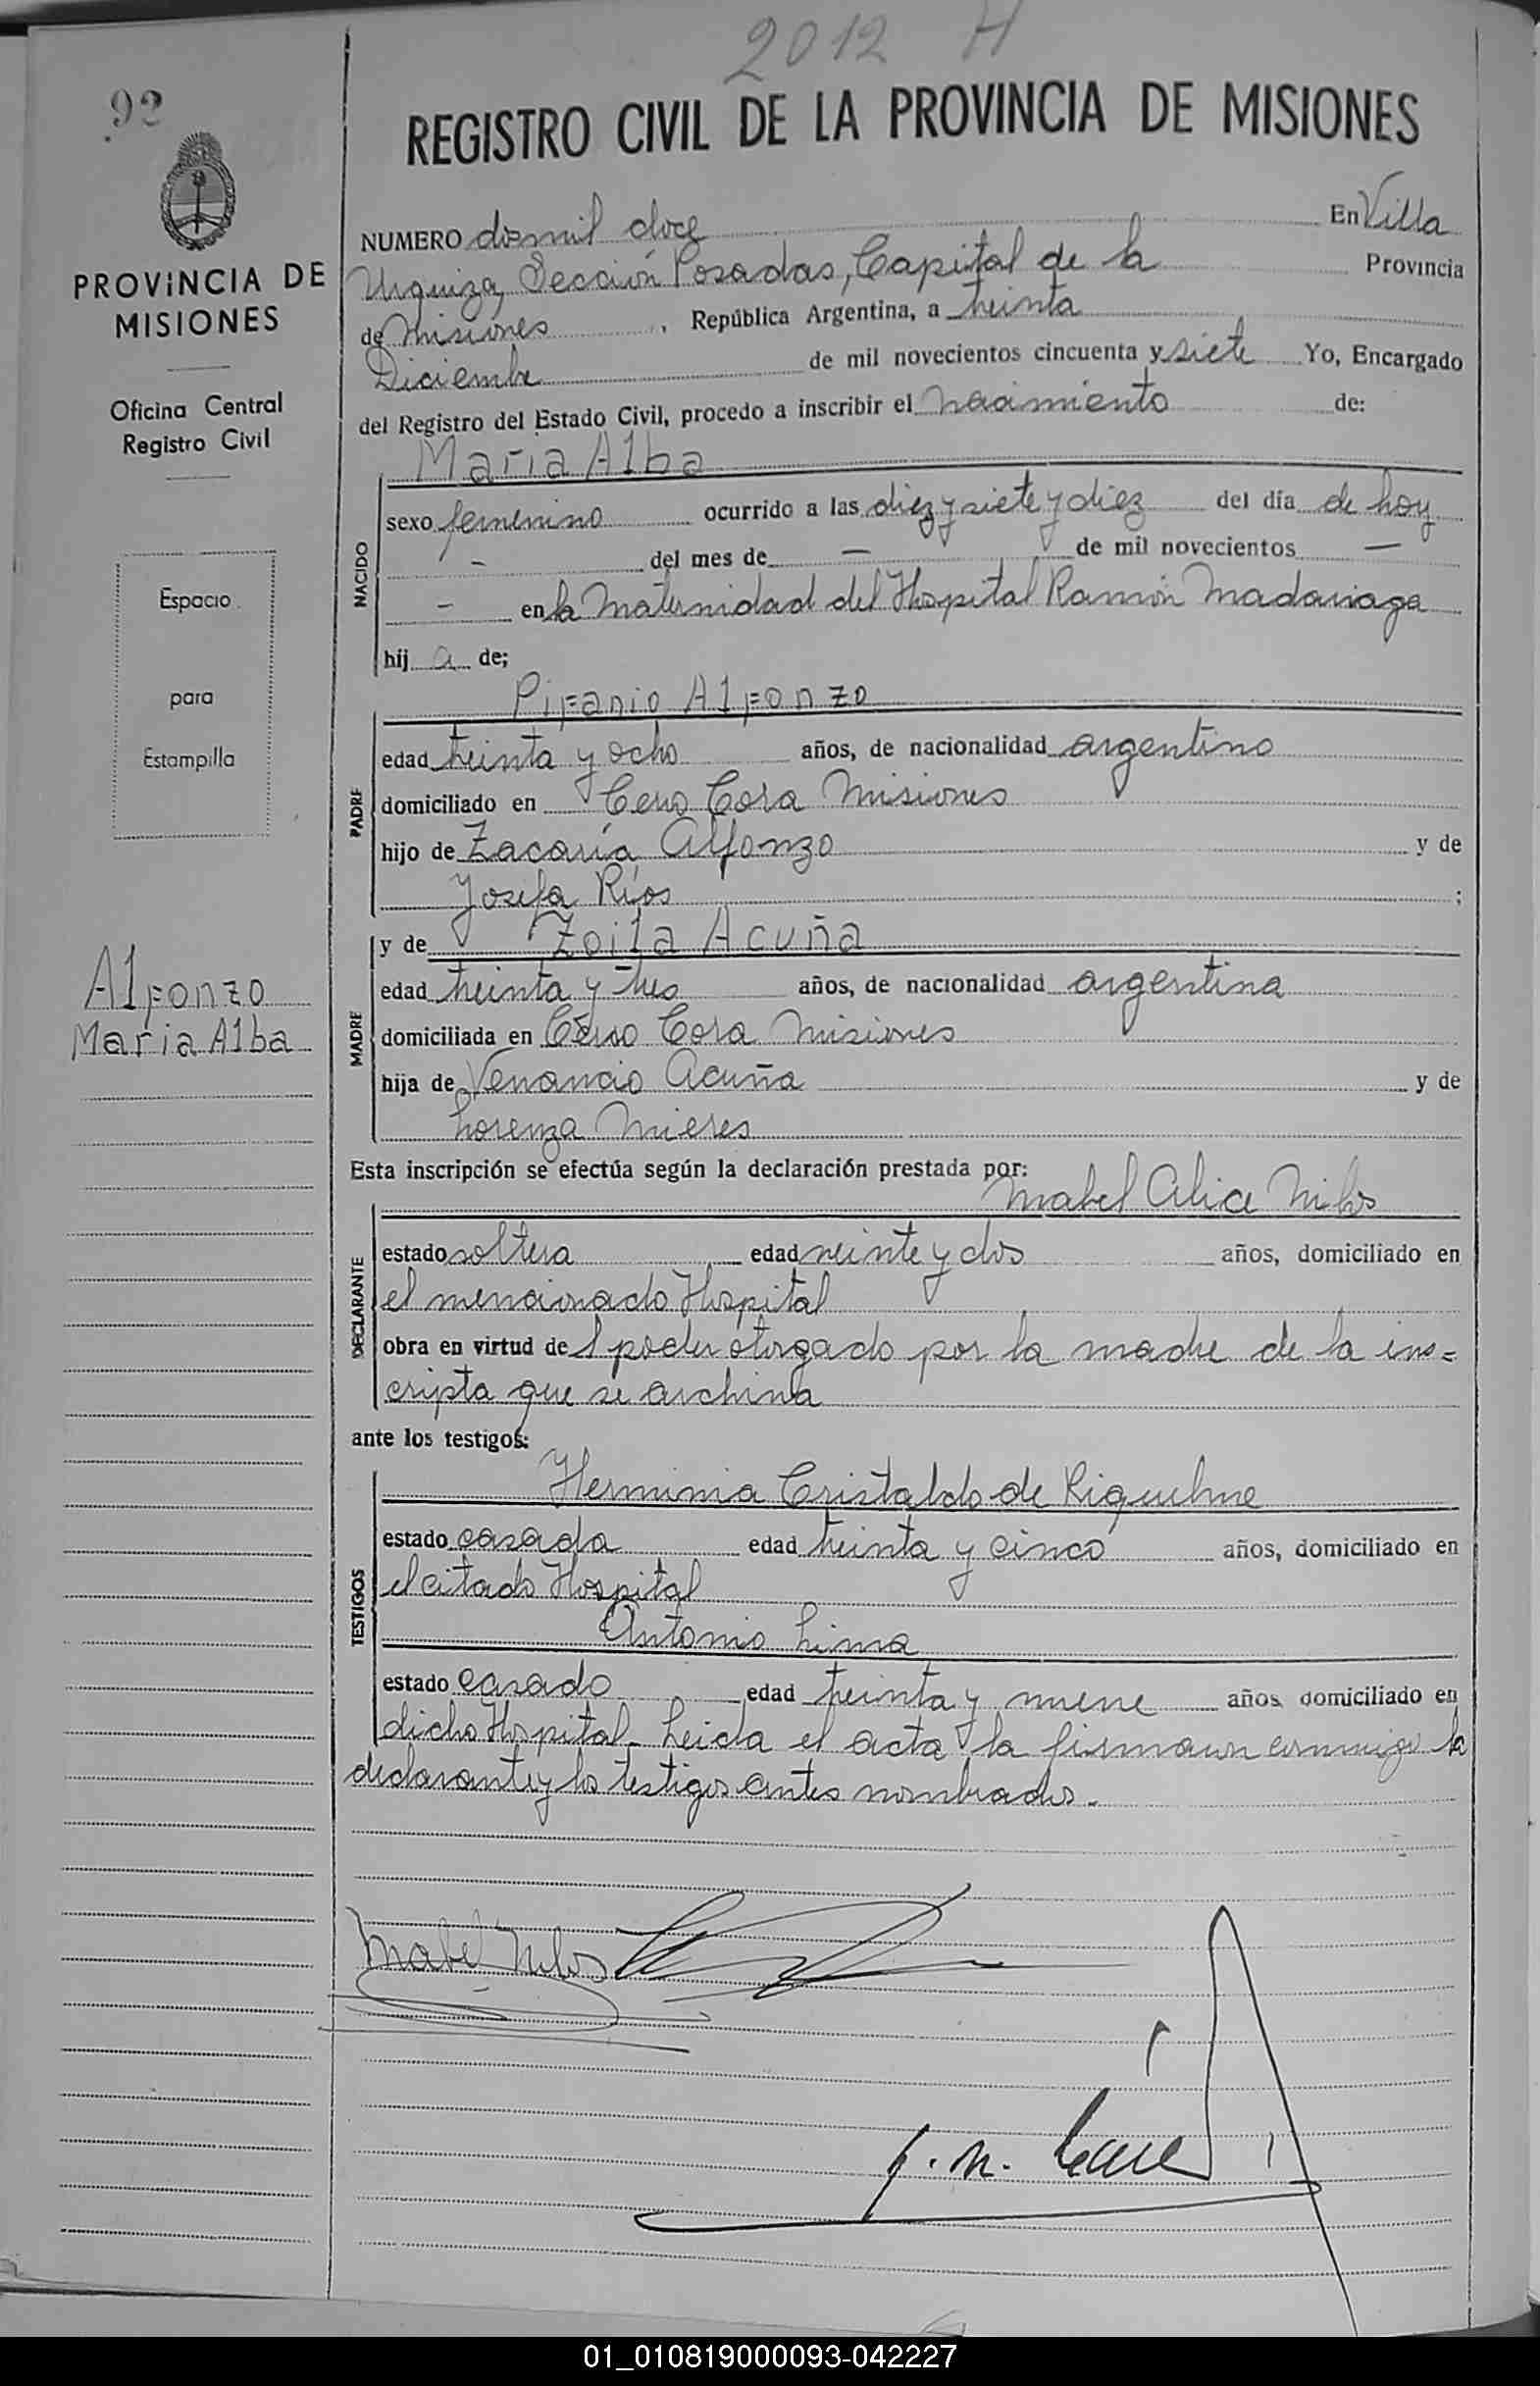 2012 H
92
REGISTRO CIVIL DE LA PROVINCIA DE MISIONES
PROVINCIA DE
MISIONES
Oficina Central
Registro Civil
Espacio
para
Estampilla
Alfonzo
Maria Alba
NUMERO dosmil doce En Villa
Urquiza, Sección Posadas, Capital de la Provincia
de Misiones, República Argentina, a treinta
Diciembre de mil novecientos cincuenta y siete Yo, Encargado
del Registro del Estado Civil, procedo a inscribir el nacimiento de:
Maria Alba
NACIDO
sexo femenino ocurrido a las diez y siete y diez del día de hoy
- del mes de - de mil novecientos -
- en la Maternidad del Hospital Ramón Madariaga
hij a de;
Pifanio Alfonzo
PADRE
edad treinta y ocho años, de nacionalidad argentino
domiciliado en Cerro Cora Misiones
hijo de Zacaría Alfonzo y de
Josefa Ríos ;
y de Zoila Acuña
MADRE
edad treinta y tres años, de nacionalidad argentina
domiciliada en Cerro Cora Misiones
hija de Venancio Acuña y de
Lorenza Mieres
Esta inscripción se efectúa según la declaración prestada por:
Mabel Alice
DECLARANTE
estado soltera edad veinte y dos años, domiciliado en
el mencionado Hospital
obra en virtud de l poder otorgado por la madre de la ins=
cripta que se archiva
ante los testigos:
Herminia Cristaldo de Riquelme
TESTIGOS
estado casada edad treinta y cinco años, domiciliado en
el citado Hospital
Antonio Lima
estado casado edad treinta y nueve años domiciliado en
dicho Hospital. Leida el acta la firmaron conmigo la
declarante y los testigos antes nombrados.-
Mabel
01_010819000093-042227